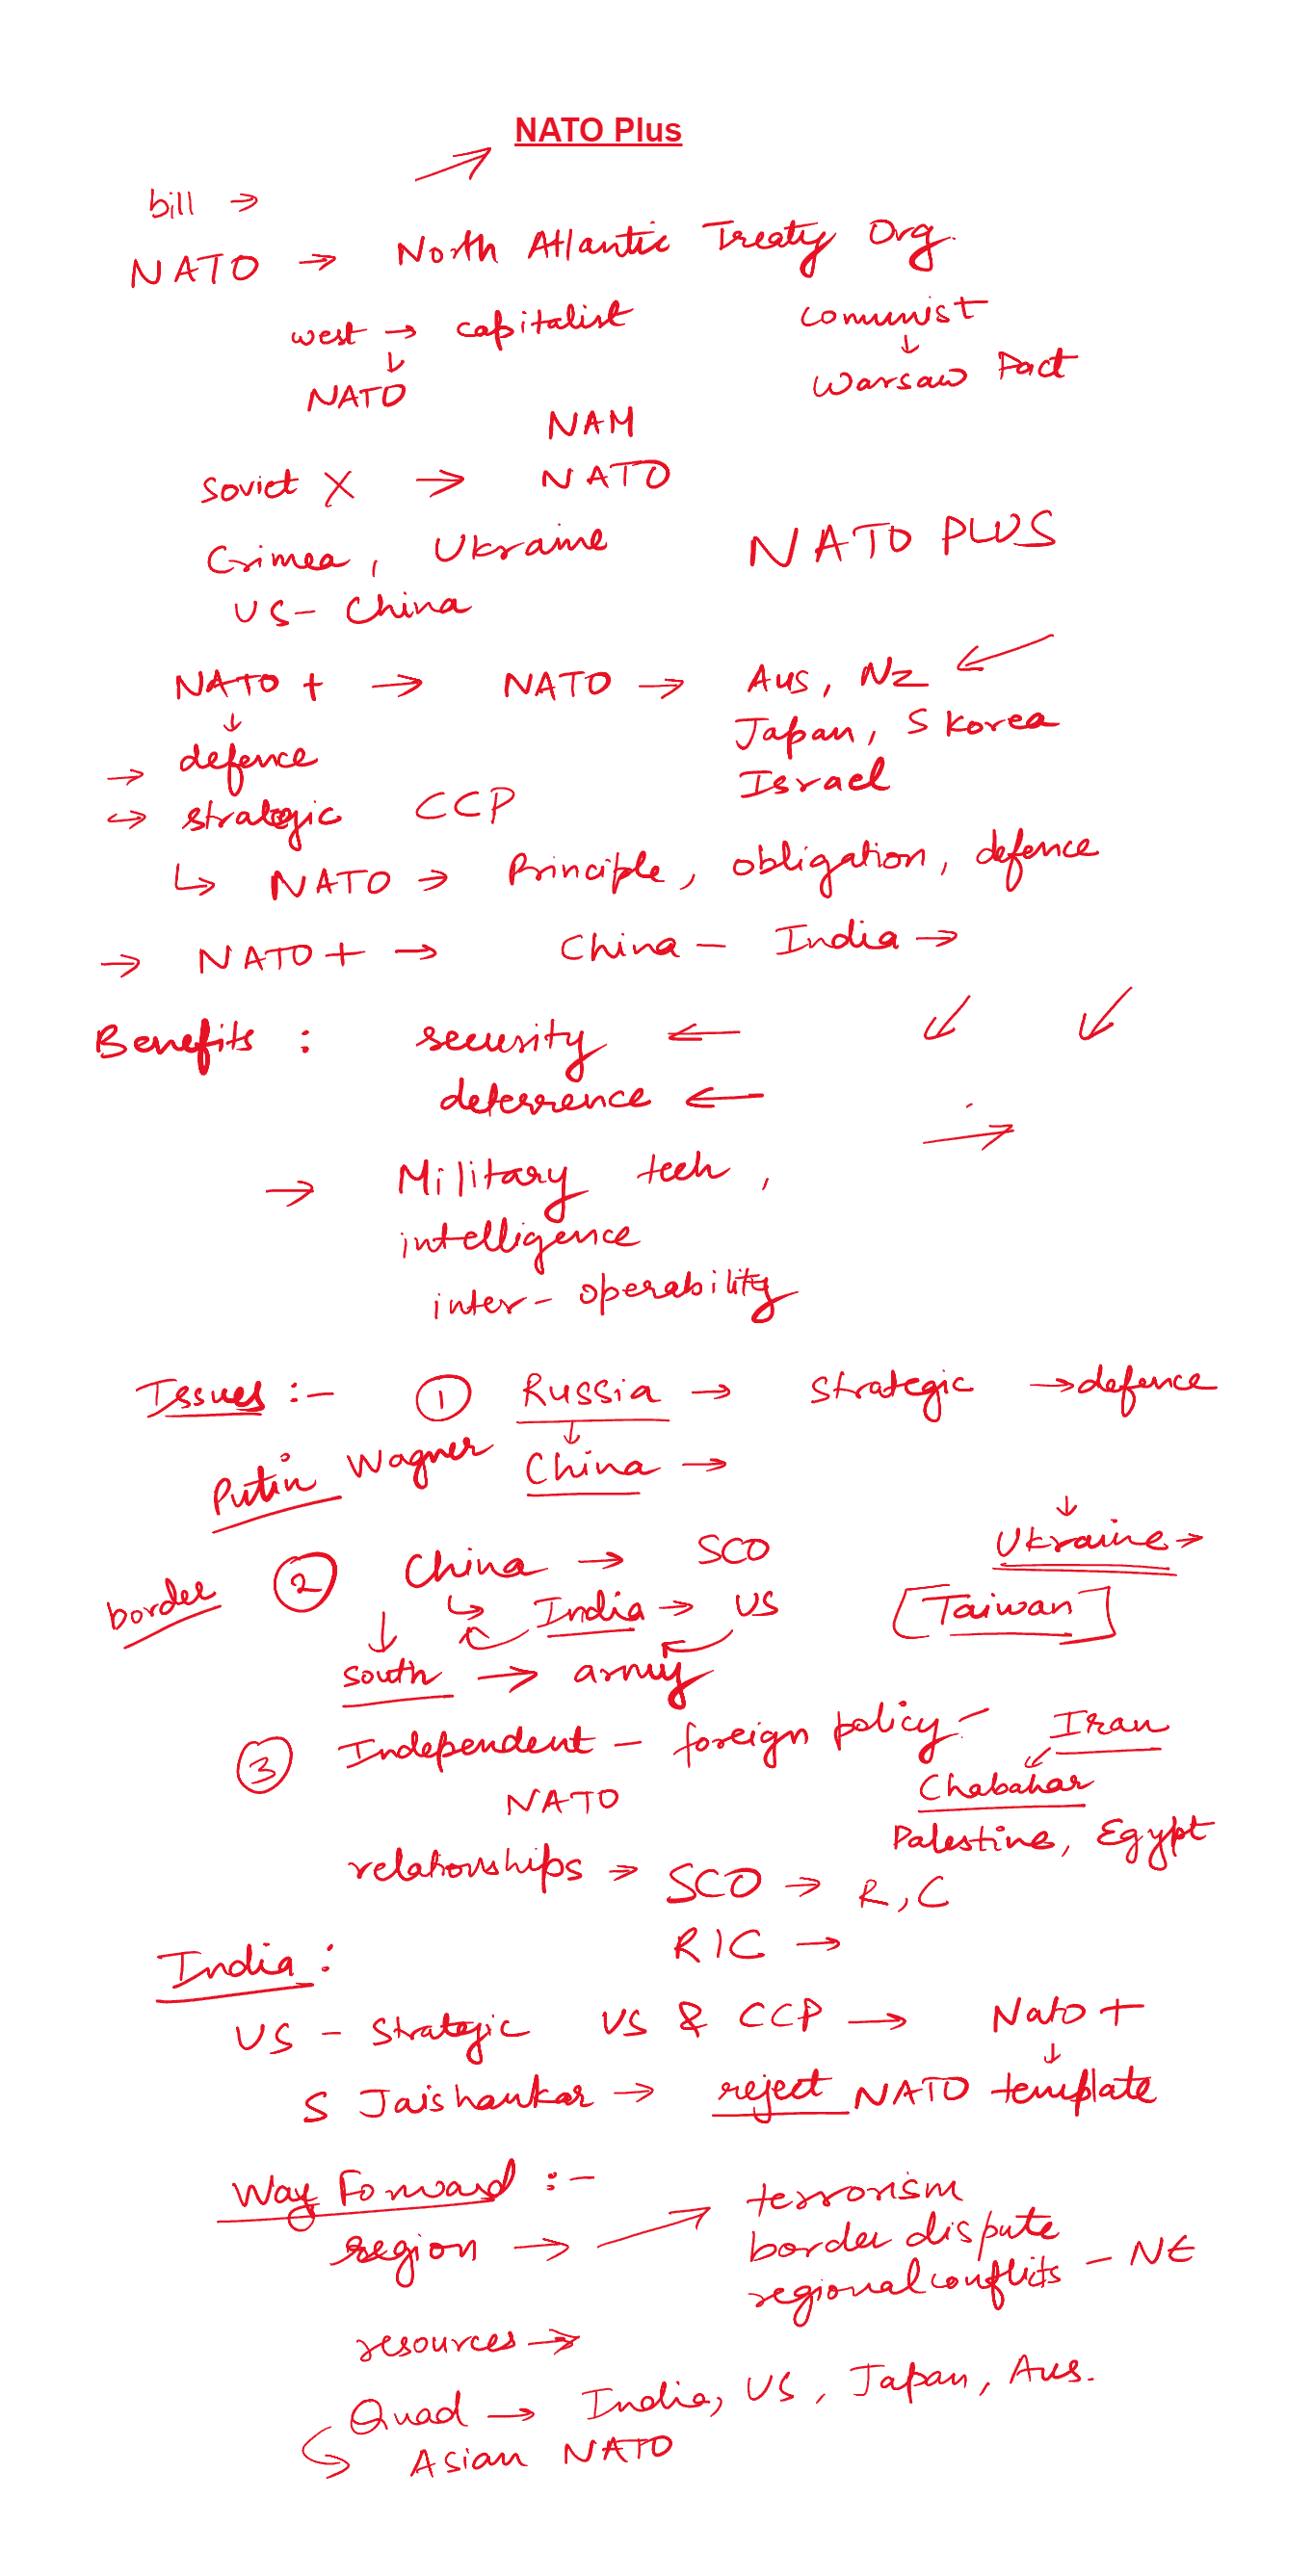 NATO Plus
bill →
NATO → North Atlantic Treaty Org.
west → capitalist communist
↓ ↓
NATO Warsaw Pact
NAM
Soviet X → NATO
Crimea, Ukraine NATO PLUS
US - China
NATO + → NATO → Aus, NZ
↓ Japan, S Korea
→ defence Israel
→ strategic CCP
↳ NATO → Principle, obligation, defence
→ NATO + → China - India →
Benefits : security ←
deterrence ←
→ Military tech,
intelligence
inter-operability
Issues :- ① Russia → strategic → defence
↓
Putin Wagner China →
↓
② China → SCO Ukraine →
border ↳ India → US [Taiwan]
south → army
③ Independent - foreign policy - Iran
NATO Chabahar
Palestine, Egypt
relationships → SCO → R, C
RIC →
India :
US - Strategic US & CCP → Nato +
↓
S Jaishankar → reject NATO template
Way Forward :-
region → terrorism
border dispute
regional conflicts - NE
resources →
Quad → India, US, Japan, Aus.
Asian NATO